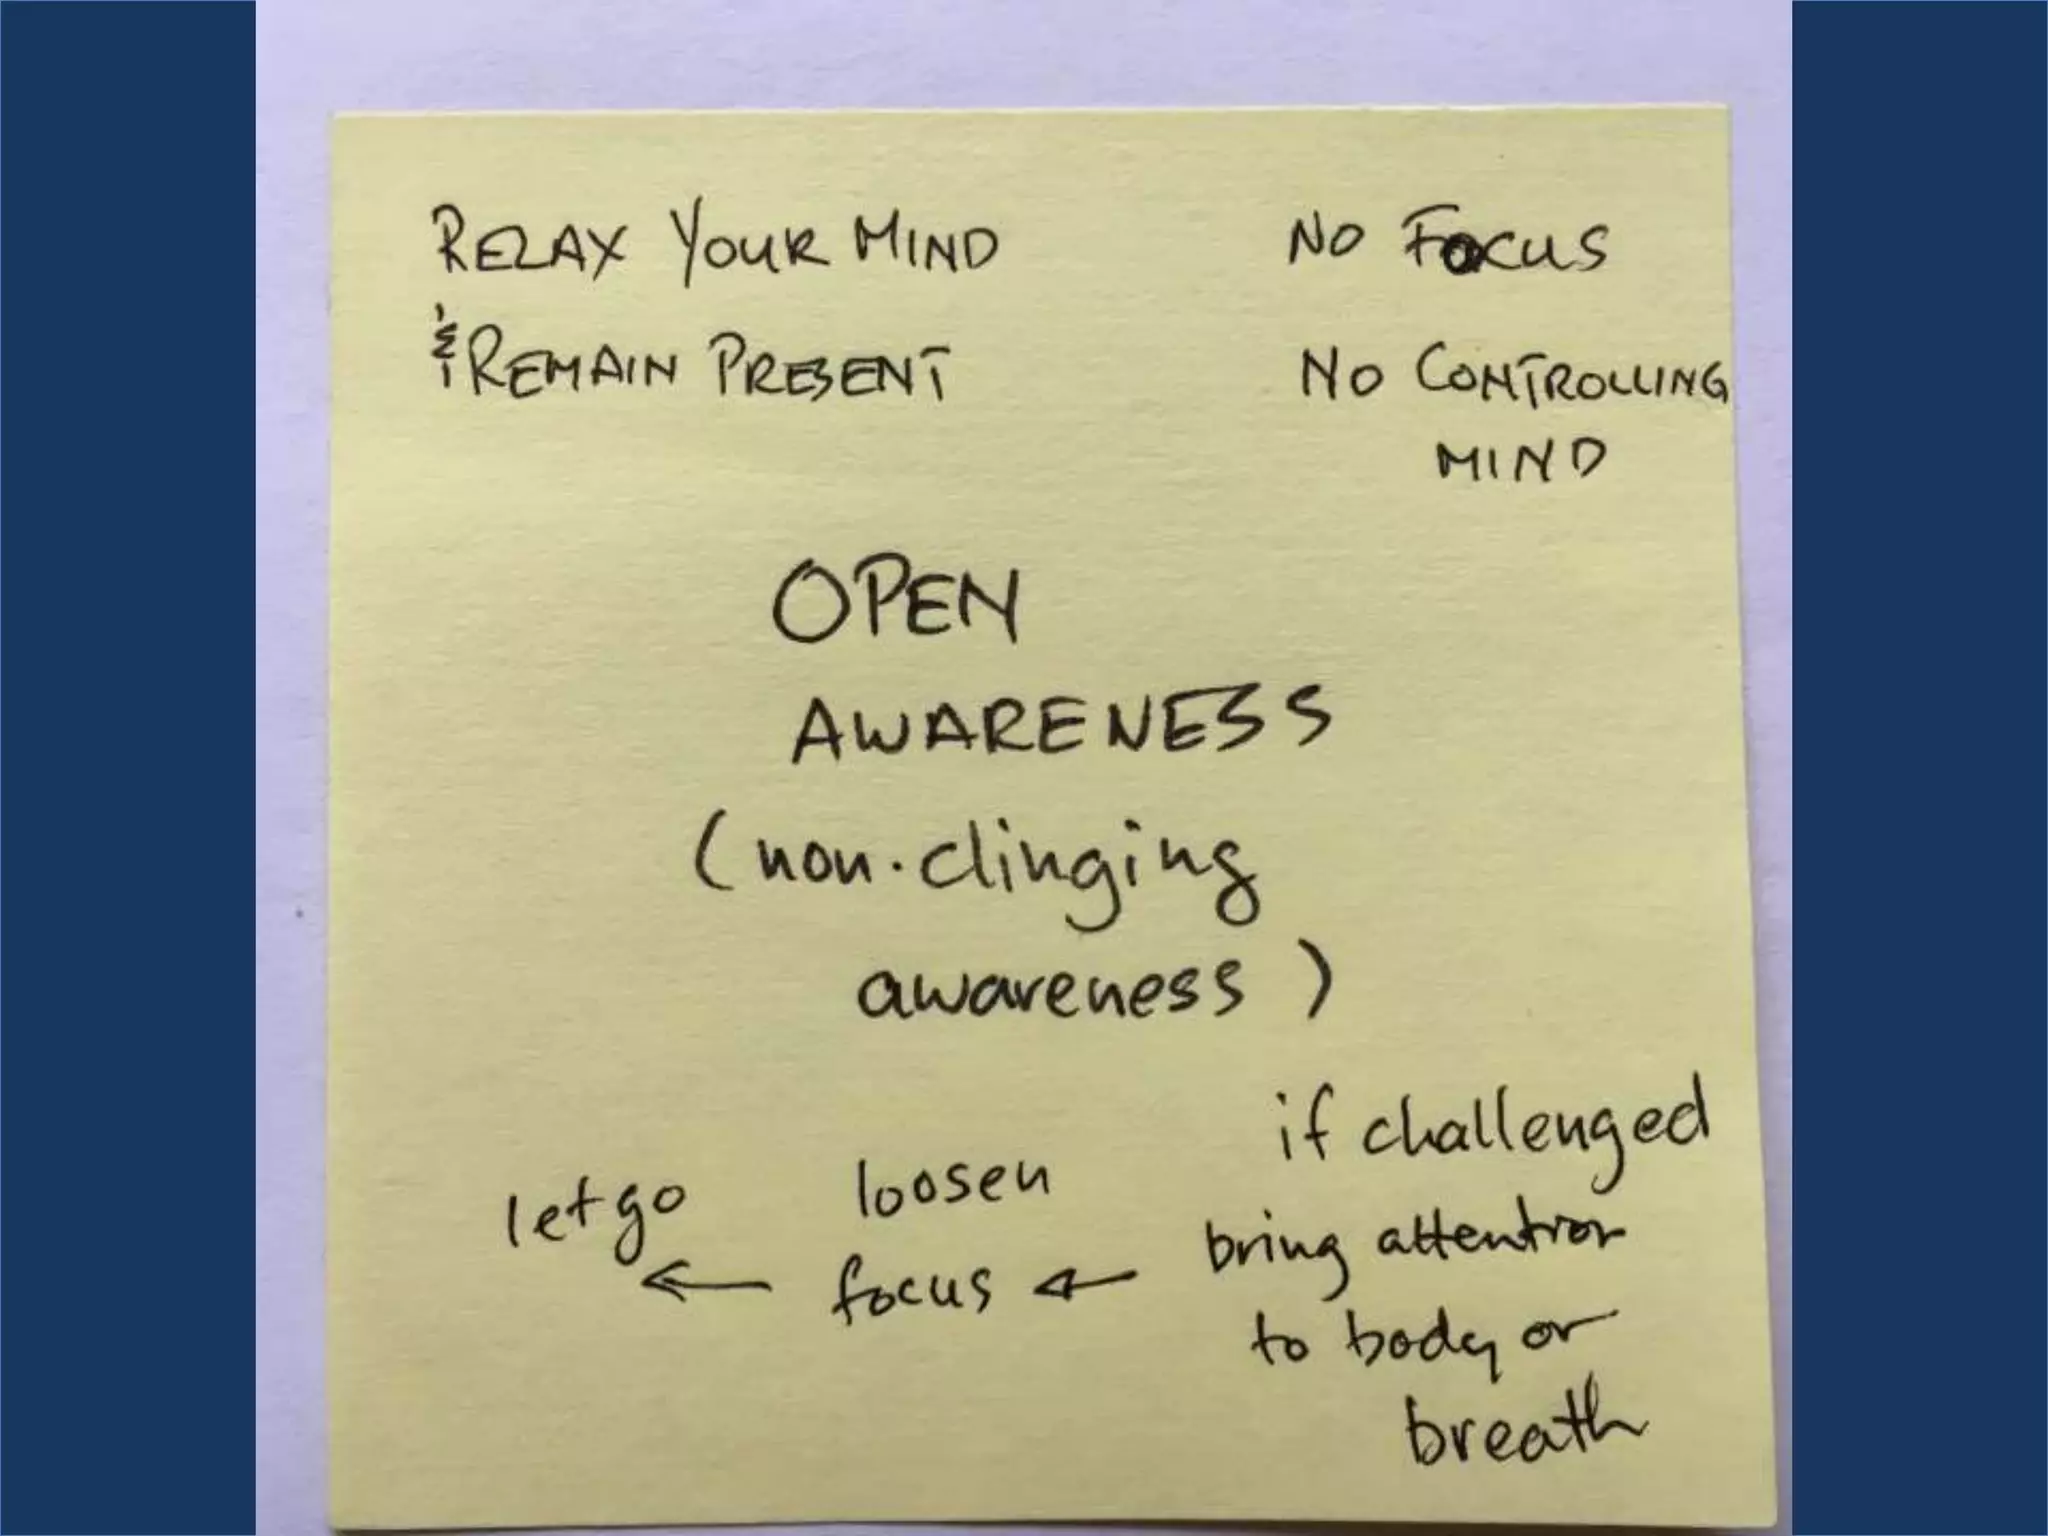 RELAX YOUR MIND
& REMAIN PRESENT
NO FOCUS
NO CONTROLLING
MIND
OPEN
AWARENESS
(non-clinging
awareness)
let go
← 
loosen
focus ←
if challenged
bring attention
to body or
breath